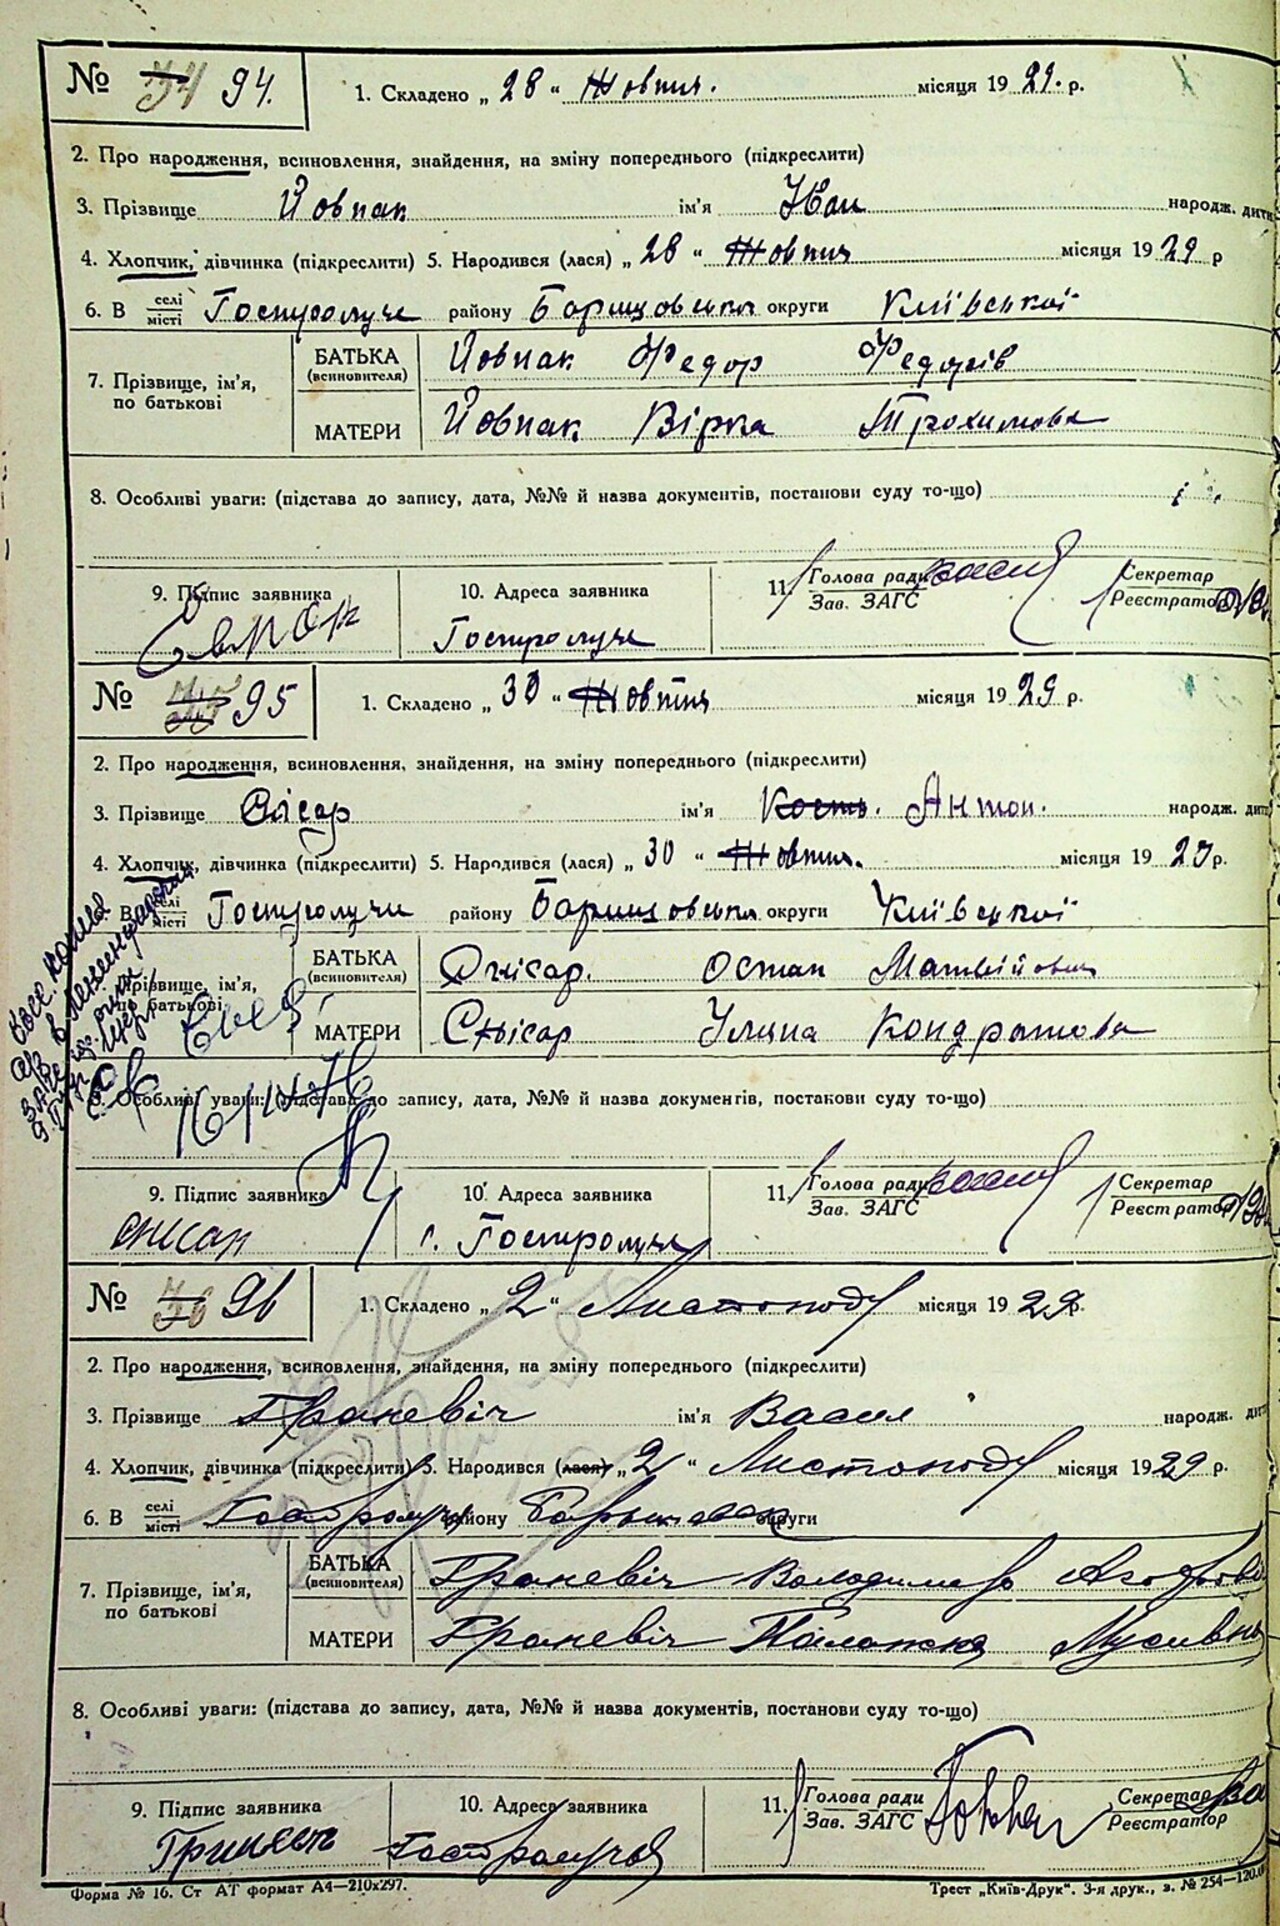 № 94. 1. Складено „ 28 “ Жовтня. місяця 19 29. р.
2. Про народження, всиновлення, знайдення, на зміну попереднього (підкреслити)
3. Прізвище Йовпак ім'я Іван народж. дит
4. Хлопчик, дівчинка (підкреслити) 5. Народився (лася) „ 28 “ Жовтня місяця 19 29 р
6. В селі місті Гостролуче району Баришовськи округи Київської
7. Прізвище, ім'я, по батькові
БАТЬКА (всиновителя) Йовпак Федор Федорів
МАТЕРИ Йовпак Вірка Трохимова
8. Особливі уваги: (підстава до запису, дата, №№ й назва документів, постанови суду то-що)
9. Підпис заявника 10. Адреса заявника 11. Голова ради Зав. ЗАГС Секретар Реєстратор
Гостролуче
№ 95 1. Складено „ 30 “ Жовтня місяця 19 29 р.
2. Про народження, всиновлення, знайдення, на зміну попереднього (підкреслити)
3. Прізвище Снісар ім'я Кость. Антон. народж. дит
4. Хлопчик, дівчинка (підкреслити) 5. Народився (лася) „ 30 “ Жовтня. місяця 19 29 р.
В селі місті Гостролучи району Баришовськи округи Київської
Прізвище, ім'я, по батькові
БАТЬКА (всиновителя) Снісар. Остап Матвійович
МАТЕРИ Снісар Улина Кондратова
8. Особливі уваги: (підстава до запису, дата, №№ й назва документів, постанови суду то-що)
9. Підпис заявника 10. Адреса заявника 11. Голова ради Зав. ЗАГС Секретар Реєстратор
снісар с. Гостролуче
№ 96 1. Складено „ 2 “ Листопаду місяця 19 29 р.
2. Про народження, всиновлення, знайдення, на зміну попереднього (підкреслити)
3. Прізвище Граневіч ім'я Васил народж. дит
4. Хлопчик, дівчинка (підкреслити) 5. Народився (лася) „ 2 “ Листопаду місяця 19 29 р.
6. В селі місті Гостролучу району округи
7. Прізвище, ім'я, по батькові
БАТЬКА (всиновителя) Граневіч Володимер
МАТЕРИ Граневіч Палажка Мусивна
8. Особливі уваги: (підстава до запису, дата, №№ й назва документів, постанови суду то-що)
9. Підпис заявника 10. Адреса заявника 11. Голова ради Зав. ЗАГС Секретар Реєстратор
Форма № 16. Ст АТ формат А4—210х297. Трест „Київ-Друк“. 3-я друк., з. № 254—120.0